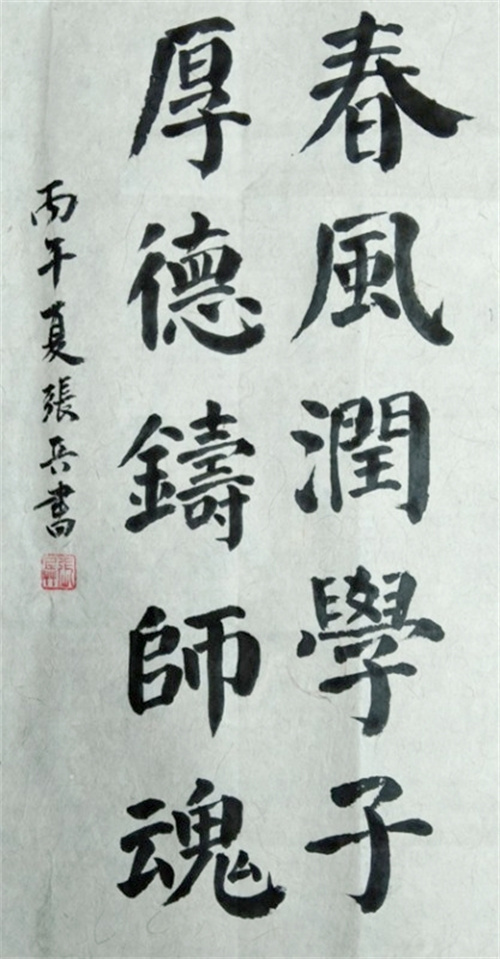 春風潤學子
厚德鑄師魂
丙午夏張兵書